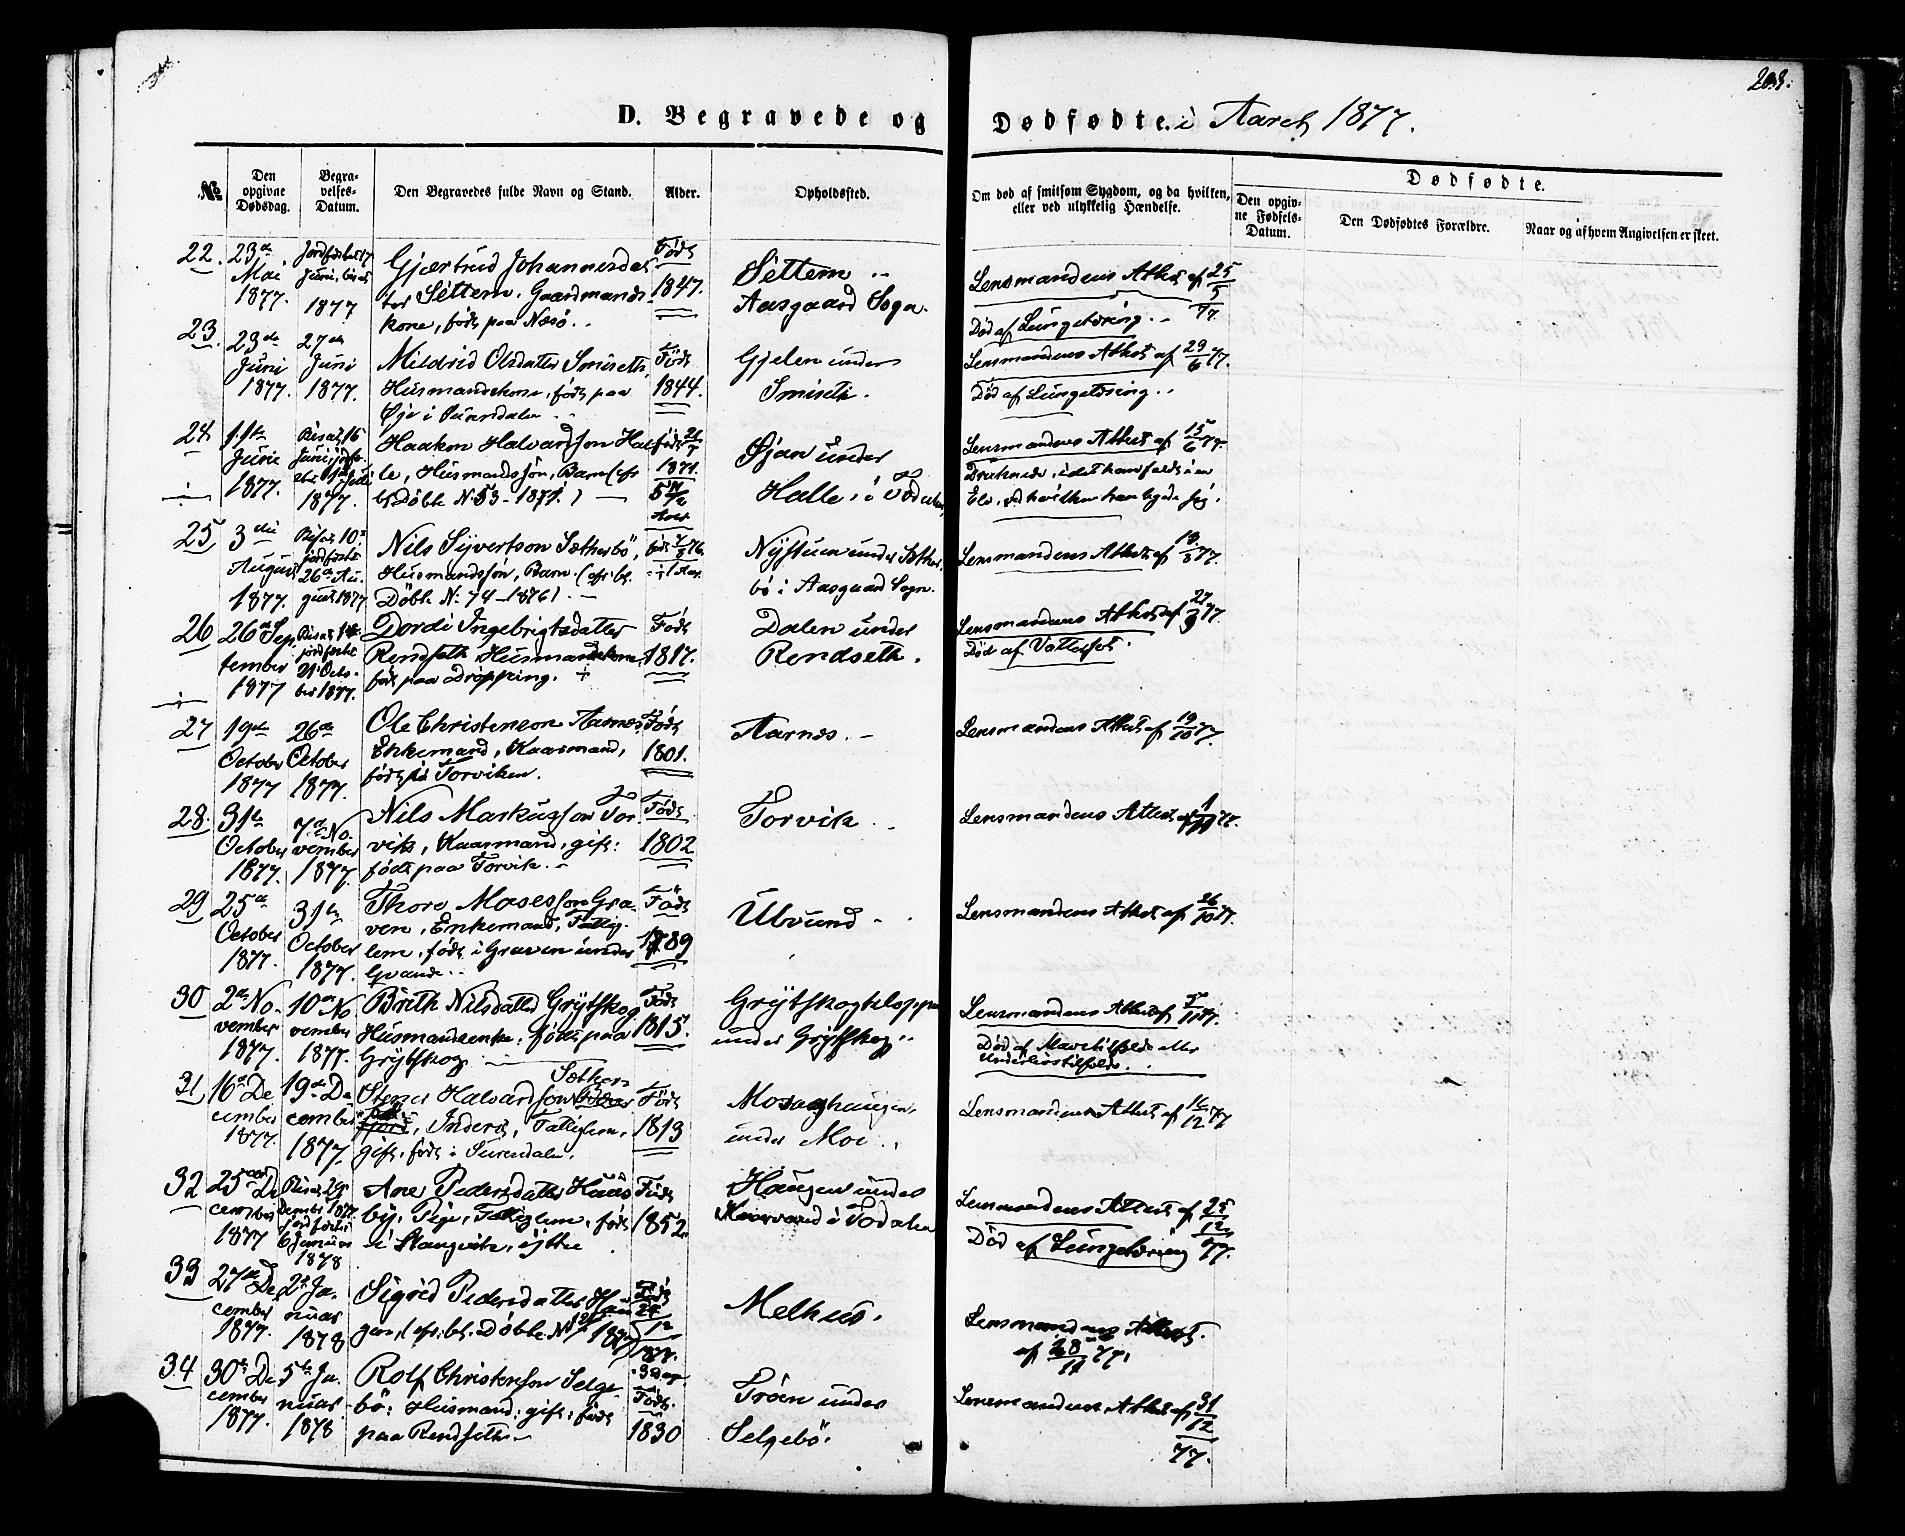 203.
D. Begravede og Dødfødte. i Aaret 1877.
No.
Den opgivne Dødsdag.
Begravelses-Datum.
Den Begravedes fulde Navn og Stand.
Alder.
Opholdssted.
Om død af smitsom Sygdom, og da hvilken, eller ved ulykkelig Hændelse.
Dødfødte.
Den opgivne Fødsels-Datum.
Den Dødfødtes Forældre.
Naar og af hvem Angivelsen er skeet.
22. 23de Mai 1877.
Juni 1877
Gjærtrud Johannesdat-
ter Settem. Gaardmands-
kone, født paa Næsø.
Født 1847.
Settem
Aasgaard Sogn.
Lensmandens Attest af 25/5 77.
Død af Lungetæring.
23. 23de Juni 1877.
27de Juni 1877.
Mildrid Olsdatter Smiseth,
Husmandskone, født paa
Øye i Surendalen
Født 1844.
Gjelen under
Smiseth.
Lensmandens Attest af 29/6 77.
Død af Lungetæring.
24. 11te Juni 1877.
Bisat 16 Juni, 1877.
Haakon Halvardsson Hal-
le, Husmandssøn, Barn (cfr
bl. Døbte No 53-1871.)
født 1871.
5 Aar
Øjan under
Halle i Todalen
Lensmandens Attest af 15/6 77.
Druknede, idet han faldt i en
Elv, ved hvilken han legede sig.
25. 3die August 1877.
Bisat 10de, jordfæstet 26de August 1877
Nils Syvertson Sætherbø,
Husmandssøn, Barn. (cfr. bl.
Døbte No 74-1876)
1 Aar.
Nystuen under Sæther-
bø i Aasgaard Sogn.
Lensmandens Attest af 13/8 77.
26. 26de September 1877
Bisat, jordfæstet 21 October 1877.
Dordi Ingebrigtsdatter
Rendseth Husmandskone,
født paa Drøpping.
Født 1817.
Dalen under
Rendseth.
Lensmandens Attest af 77.
Død af Vattersot.
27. 19de October 1877
26de October 1877.
Ole Christenson Aarnes,
Enkemand, Kaarmand,
født på Torviken.
Født 1801.
Aarnes.
Lensmandens Attest af 19/10 77.
28. 31te October 1877.
7de November 1877.
Nils Markusson Tor-
vik, Kaarmand, gift:
født paa Torvik.
Født 1802
Torvik
Lensmandens Attest af 1/11 77.
29. 25de October 1877.
31te October 1877.
Thore Mosesson Gra-
ven, Enkemand, Fattig-
lem, født i Graven under
Qvande.
Født 1789
Ulvund
Lensmandens Attest af 26/10 77.
30. 2de November 1877.
10de November 1877.
Brith Nilsdatter Grytskog
Husmandsenke, født paa
Grytskog
Født 1815.
Grytskogkloppen
under Grytskog
Lensmandens Attest af 5/11 77.
Død af Mavetilfælde eller
Underlivstilfælde.
31. 16de December 1877.
19de December 1877.
Stener Halvardson Sæther-
fjord, Inderst, Fattiglem,
gift, født i Surendalen.
Født 1813
under Moe.
Lensmandens Attest af 16/12 77
32. 25de December 1877
Bisat 29 December 1877, jordfæstet 6 Januar 1878
Ane Pedersdatter Huus-
by, Pige, Fattiglem, født
i Stangvik, yttre
Født 1852.
Haugen under
Kvarvand i Todalen
Lensmandens Attest af 25/12 77.
Død af Lungetæring
33. 27de December 1877.
2d Januar 1878
Sigrid Pedersdatter Hau-
gen, (cfr. bl. Døbte No 1877)
Født 24/12 1877.
3 Dage.
Melhus.
Lensmandens Attest.
af 28 77.
34. 30te December 1877.
5te Januar 1878.
Rolf Christenson Selge-
bø: Husmand: gift: født
paa Rendseth
Født 1830
Trøen under
Selgebø.
Lensmandens Attest af 31/12 77.